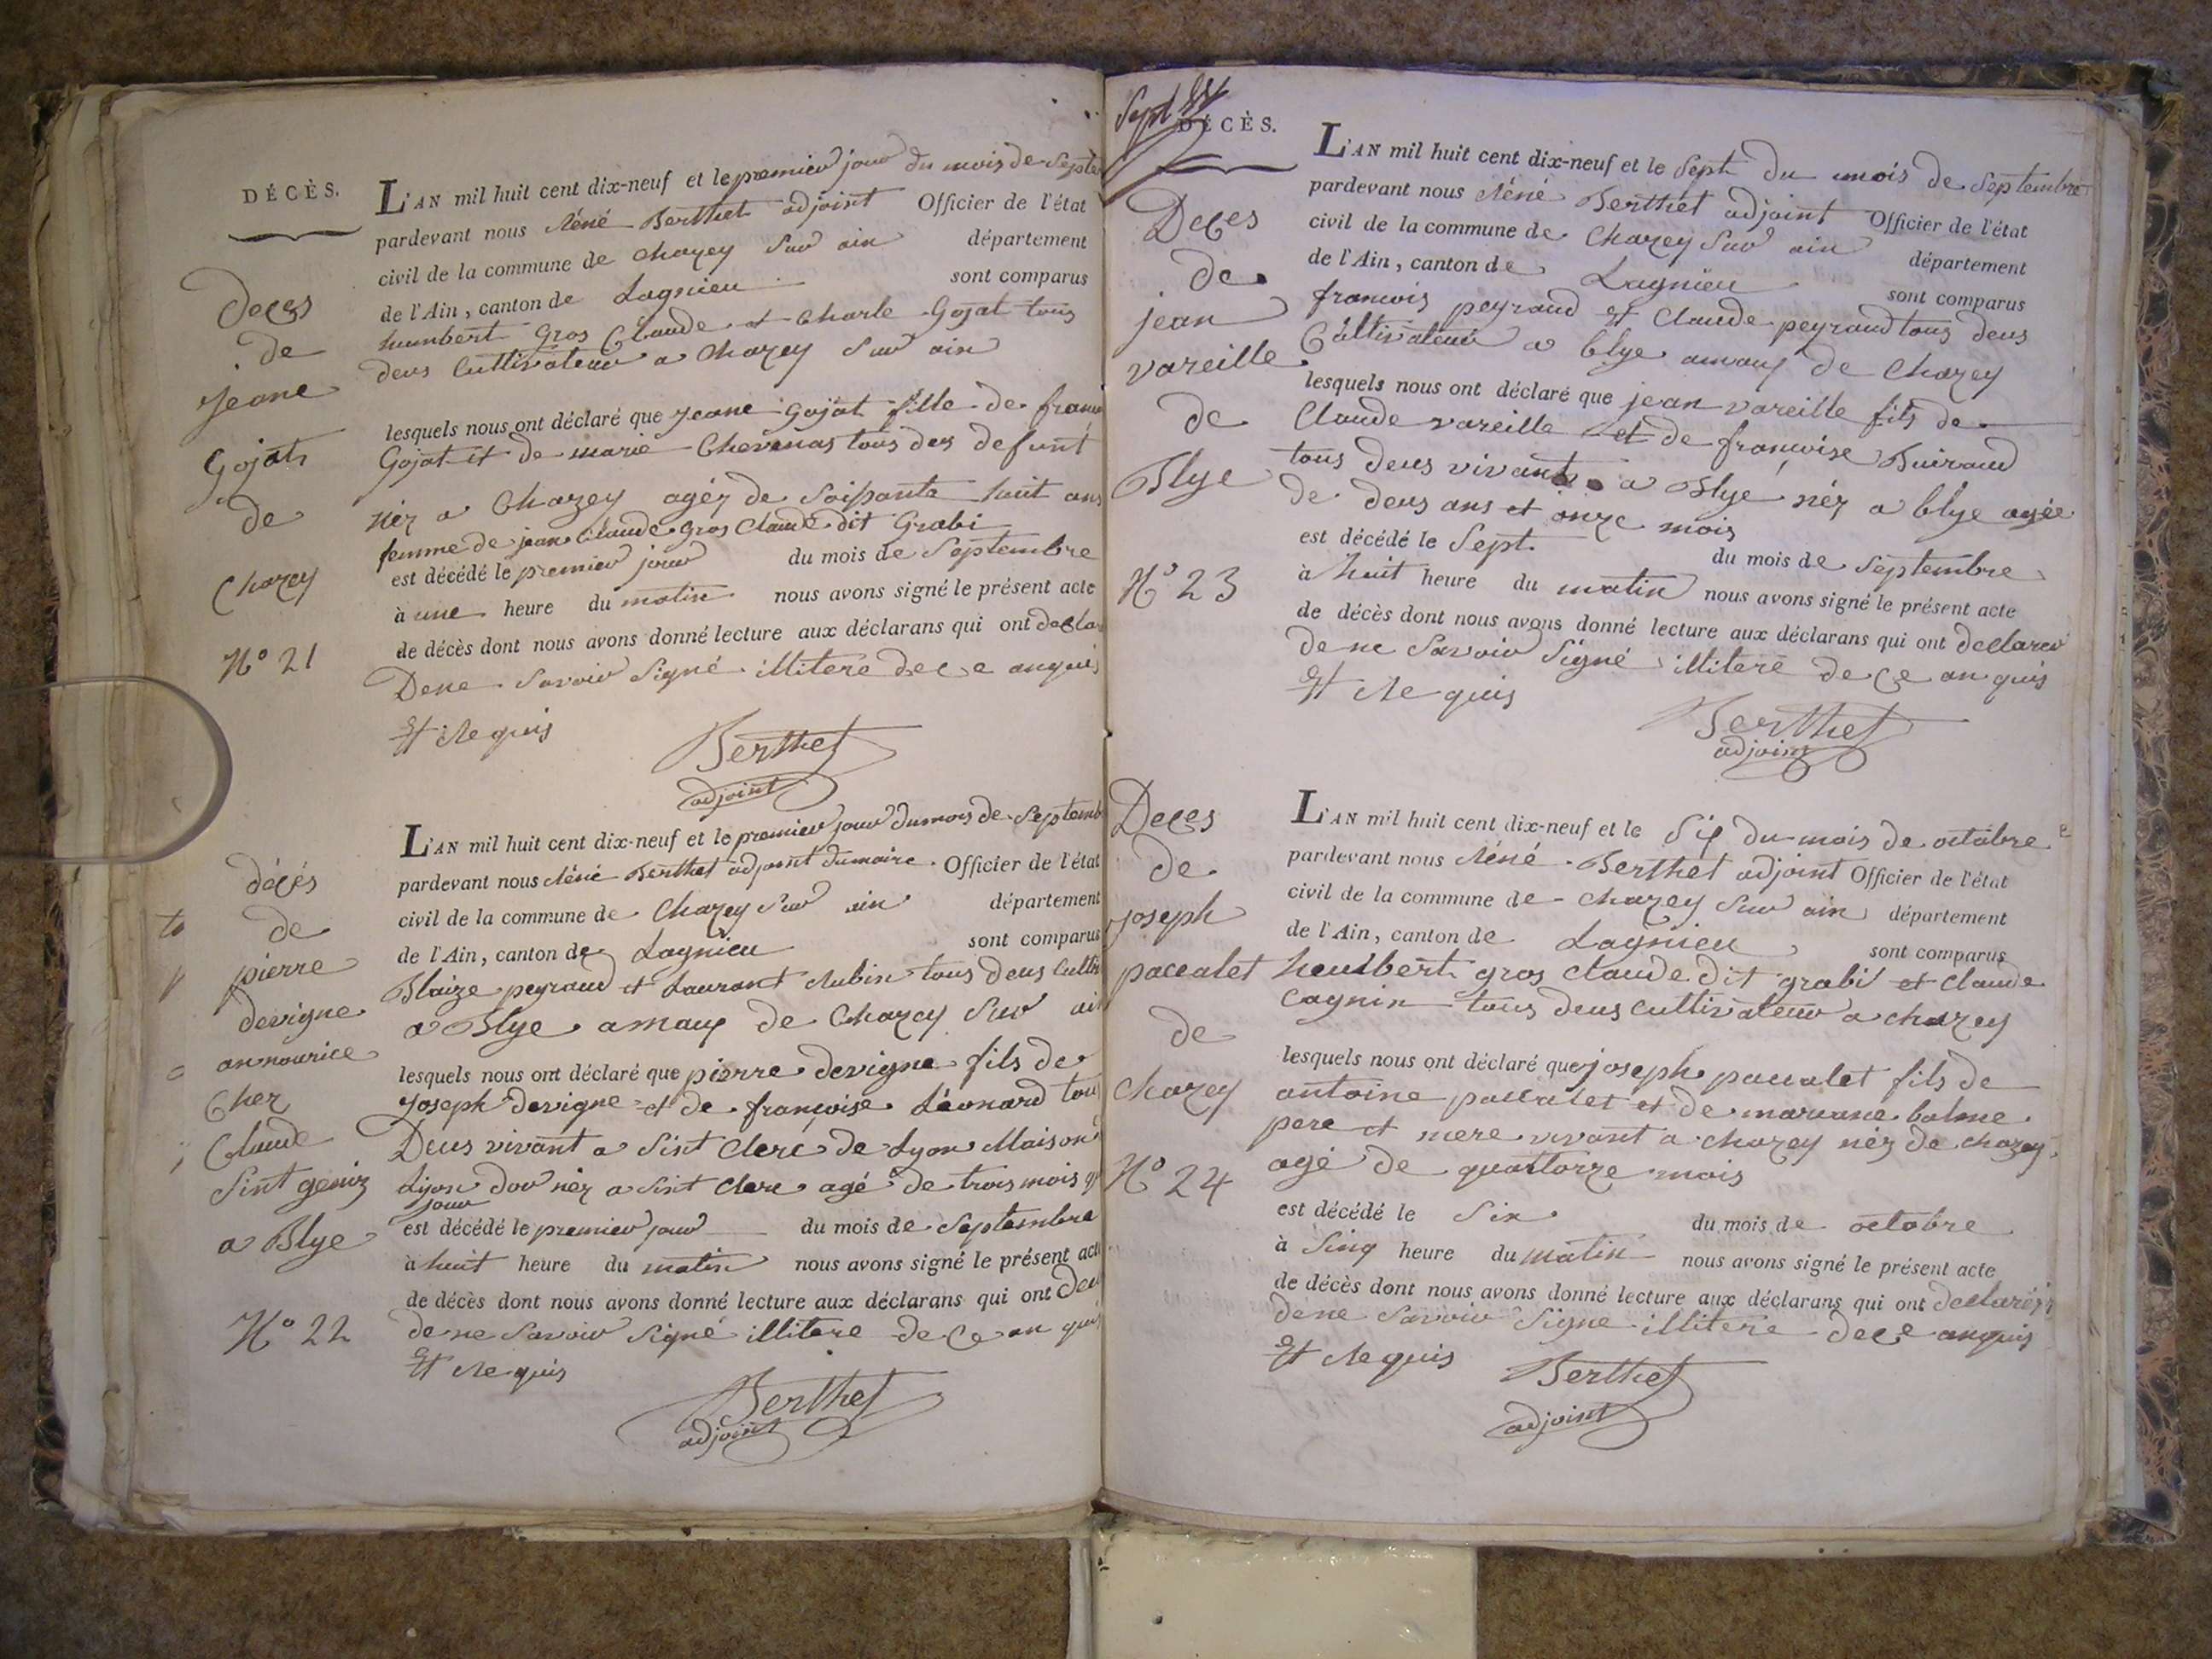 DÉCÈS.
L'AN mil huit cent dix-neuf et le premier jour du mois de Septe
pardevant nous Réné Berthet adjoint Officier de l'état
civil de la commune de chazey Sur ain département
de l'Ain, canton de Lagnieu sont comparus
humbert Gros Claude et Charle Gojat tous
deus Cultivateur a Chazey Sur ain
lesquels nous ont déclaré que jeane Gojat fille de
Gojat et de marie Chevenas tous des defunt
néz a Chazey agéz de Soissante huit ans
femme de jean Claude Gros Claude dit Grabi
est décédé le premier jour du mois de Septembre
à une heure du matin nous avons signé le présent acte
de décès dont nous avons donné lecture aux déclarans qui ont
De ne Savoir Signé illitere de ce anquis
Et Requis
Berthet
adjoint
Deces
de
jeane
Gojat
de
Chazey
N° 21
L'AN mil huit cent dix-neuf et le premier jour du mois de Septemb
pardevant nous Réné Berthet adjoint du maire Officier de l'état
civil de la commune de Chazey Sur ain département
de l'Ain, canton de Lagnieu sont comparus
Blaize peyraud et Laurant Rubin tous deus Cultiv
a Blye amaux de Chazey Sur ain
lesquels nous ont déclaré que pierre devigne fils de
joseph devigne et de françoise Léonard tou
Deus vivant a Sint Clere de Lyon Maison
Lijon dor néz a Sint Clere agé de trois mois
jour
est décédé le premier jour du mois de Septembre
à huit heure du matin nous avons signé le présent acte
de décès dont nous avons donné lecture aux déclarans qui ont
de ne Savoir Signé illitere de ce an quis
Et Requis
Berthet
adjoint
décés
de
pierre
devigne
an nourice
Cher
Claude
Sint geniz
a Blye
N° 22
Sept
DÉCÈS.
L'AN mil huit cent dix-neuf et le Sept du mois de Septembre
pardevant nous Réné Berthet adjoint Officier de l'état
civil de la commune de Chazey Sur ain département
de l'Ain, canton de Lagnieu sont comparus
francois peyraud et Claude peyraud tous deus
Cultivateur a blye amaux de Chazey
lesquels nous ont déclaré que jean vareille fils de
Claude vareille et de françoise Buiraud
tous deus vivant a Blye néz a blye agée
de deus ans et onze mois
est décédé le Sept du mois de Septembre
à huit heure du matin nous avons signé le présent acte
de décès dont nous avons donné lecture aux déclarans qui ont declarer
de ne Savoir Signé illitere de ce an quis
Et Requis
Berthet
adjoint
Deces
de
jean
vareille
de
Blye
N° 23
L'AN mil huit cent dix-neuf et le Six du mois de octobre
pardevant nous Réné Berthet adjoint Officier de l'état
civil de la commune de chazey Sur ain département
de l'Ain, canton de Lagnieu sont comparus
heulbert gros claude dit grabi et claude
Cagnin tous deus cultivateur a chazey
lesquels nous ont déclaré que joseph paccalet fils de
antoine paccalet et de mariane balme
pere et mere vivant a chazey néz de chazey
agé de quattorze mois
est décédé le Six du mois de octobre
à Sinq heure du matin nous avons signé le présent acte
de décès dont nous avons donné lecture aux déclarans qui ont declaréz
de ne Savoir Signe illitere de ce anquis
Et Requis
Berthet
adjoint
Deces
de
joseph
paccalet
de
chazey
N° 24